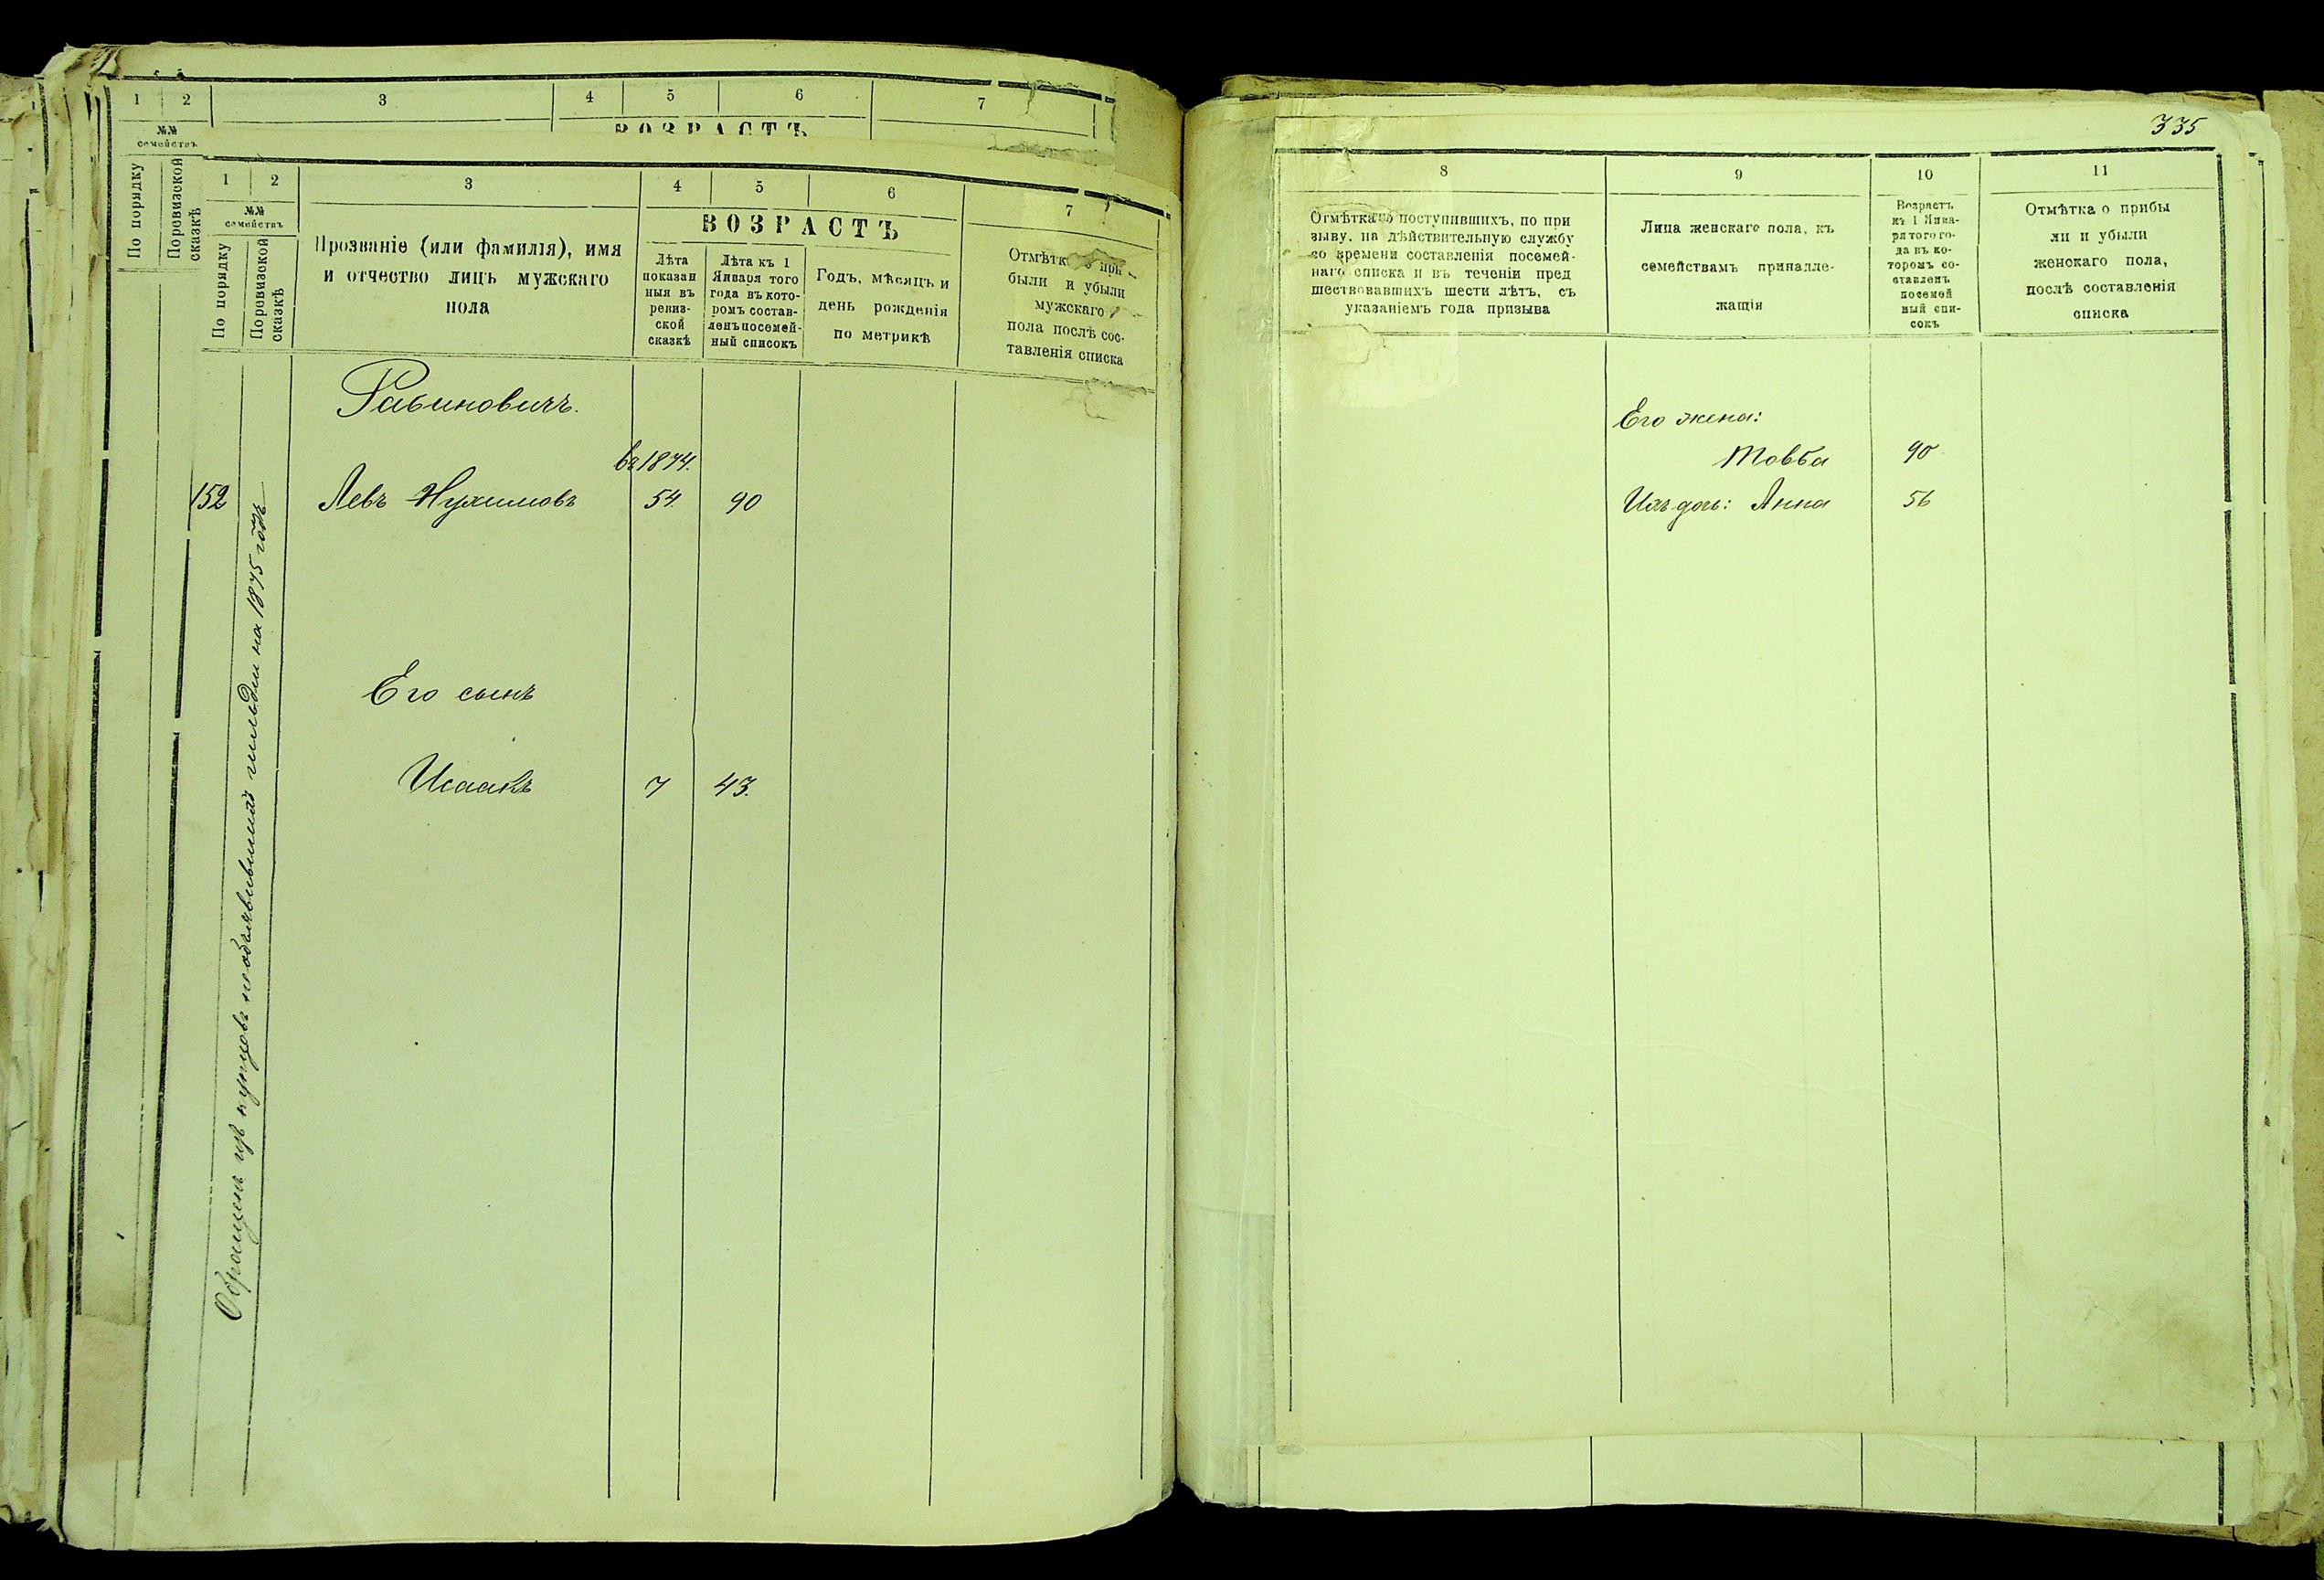 1 2 3 4 5 6 7
№№
семействъ
По порядку
Поревизской
сказкѣ
ВОЗРАСТЪ
1 2 3 4 5 6 7
№№
семействъ
По порядку
Поревизской
сказкѣ
Прозваніе (или фамилія), имя
и отчество лицъ мужскаго
пола
ВОЗРАСТЪ
Лѣта
показан
ныя въ
ревиз-
ской
сказкѣ
Лѣта къ 1
Января того
года въ кото-
ромъ состав-
ленъ посемей-
ный списокъ
Годъ, мѣсяцъ и
день рожденія
по метрикѣ
Отмѣтка о при
были и убыли
мужскаго
пола послѣ сос-
тавленія списка
Рабиновичъ.
въ 1874.
152 Левъ Нухимовъ 54. 90
Его сынъ
Исаакъ 7 43.
Обращенъ изъ купцовъ необъявившихъ гильдіи на 1875 годъ
335
8 9 10 11
Отмѣтка о поступившихъ, по при
зыву, на дѣйствительную службу
со времени составленія посемей-
наго списка и въ теченіи пред
шествовавшихъ шести лѣтъ, съ
указаніемъ года призыва
Лица женскаго пола, къ
семействамъ принадле-
жащія
Возрастъ
къ 1 Янва-
ря того го-
да въ ко-
торомъ со-
ставленъ
посемей
ный спи-
сокъ
Отмѣтка о прибы
ли и убыли
женскаго пола,
послѣ составленія
списка
Его жена:
Товба 90
Ихъ дочь: Анна 56